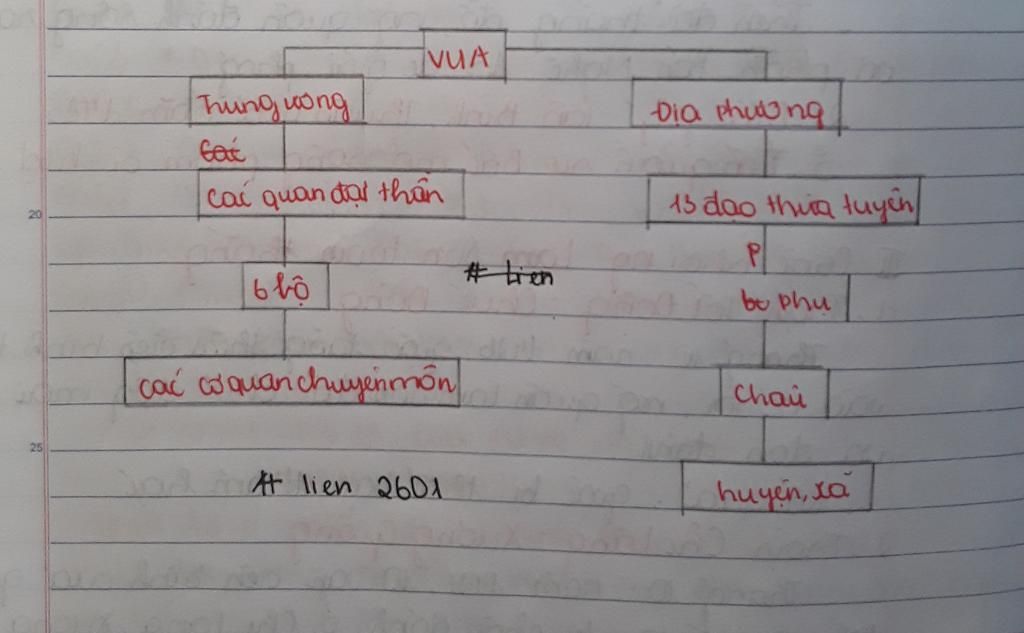 VUA
Trung ương
Địa phương
Các
các quan đại thần
13 đạo thừa tuyên
20
P
6 bộ
# lien
phụ
các cơ quan chuyên môn
Chaú
25
# lien 2601
huyện, xã